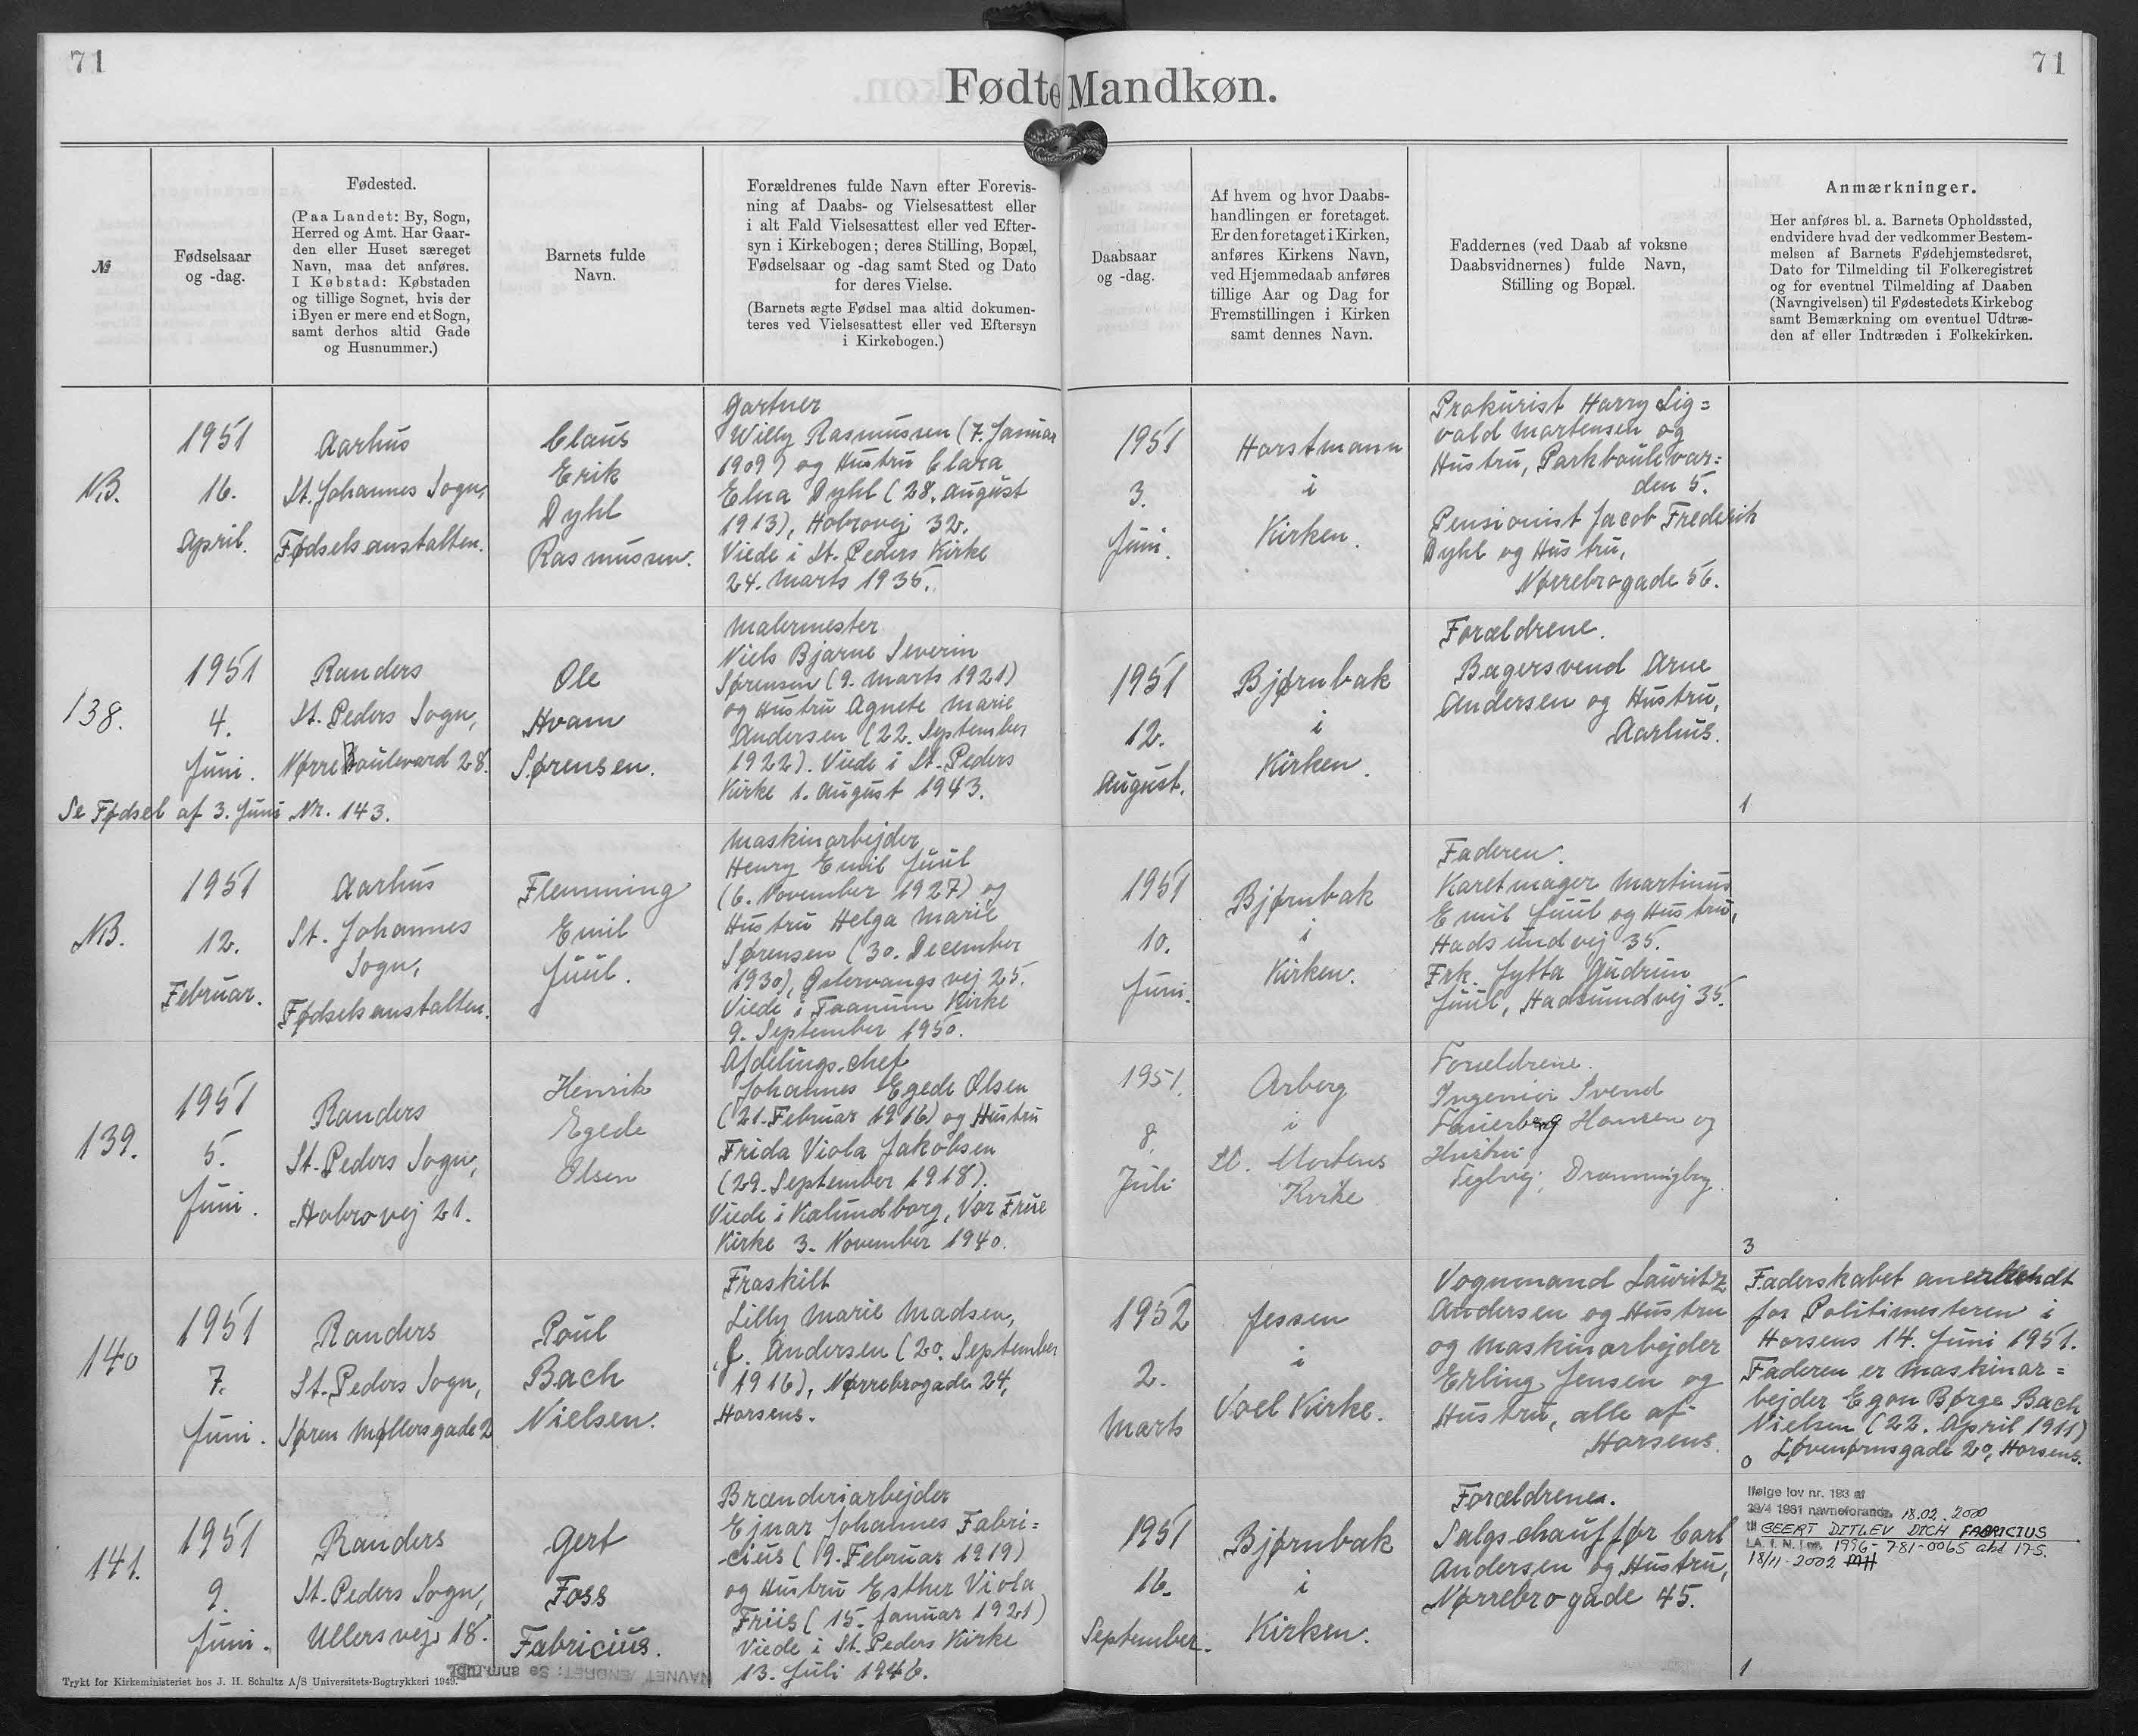 71
71
Fødte Mandkøn.
№
Fødselsaar
og -dag.
Fødested.
(Paa Landet: By, Sogn,
Herred og Amt. Har Gaar-
den eller Huset særeget
Navn, maa det anføres.
I Købstad: Købstaden
og tillige Sognet, hvis der
i Byen er mere end et Sogn,
samt derhos altid Gade
og Husnummer.)
Barnets fulde
Navn.
Forældrenes fulde Navn efter Forevis-
ning af Daabs- og Vielsesattest eller
i alt Fald Vielsesattest eller ved Efter-
syn i Kirkebogen; deres Stilling, Bopæl,
Fødselsaar og -dag samt Sted og Dato
for deres Vielse.
(Barnets ægte Fødsel maa altid dokumen-
teres ved Vielsesattest eller ved Eftersyn
i Kirkebogen.)
Daabsaar
og -dag.
Af hvem og hvor Daabs-
handlingen er foretaget.
Er den foretaget i Kirken,
anføres Kirkens Navn,
ved Hjemmedaab anføres
tillige Aar og Dag for
Fremstillingen i Kirken
samt dennes Navn.
Faddernes (ved Daab af voksne
Daabsvidnernes) fulde Navn,
Stilling og Bopæl.
Anmærkninger.
Her anføres bl. a. Barnets Opholdssted,
endvidere hvad der vedkommer Bestem-
melsen af Barnets Fødehjemstedsret,
Dato for Tilmelding til Folkeregistret
og for eventuel Tilmelding af Daaben
(Navngivelsen) til Fødestedets Kirkebog
samt Bemærkning om eventuel Udtræ-
den af eller Indtræden i Folkekirken.
NB.
1951
16.
April.
Aarhus
St. Johannes Sogn,
Fødselsanstalten.
Claus
Erik
Dyhl
Rasmussen.
Gartner
Willy Rasmussen (7. Januar
1909) og Hustru Clara
Elna Dyhl (28. August
1913), Hobrovej 32.
Viede i St. Peders Kirke
24. Marts 1935.
1951
3.
Juni.
Horstmann
i
Kirken.
Prokurist Harry Sig=
vald Martensen og
Hustru, Parkboulevar=
den 5.
Pensionist Jacob Frederik
Dyhl og Hustru,
Nørrebrogade 56.
138.
1951
4.
Juni.
Randers
St. Peders Sogn,
Nørre Boulevard 28.
Ole
Hvam
Sørensen.
Malermester
Niels Bjarne Severin
Sørensen (9. Marts 1921)
og Hustru Agnete Marie
Andersen (22. September
1922). Viede i St. Peders
Kirke 1. August 1943.
1951
12.
August.
Bjørnbak
i
Kirken.
Forældrene.
Bagersvend Arne
Andersen og Hustru,
Aarhus.
1
Se Fødsel af 3. Juni Nr. 143.
NB.
1951
12.
Februar.
Aarhus
St. Johannes
Sogn,
Fødselsanstalten.
Flemming
Emil
Juul.
Maskinarbejder
Henry Emil Juul
(6. November 1927) og
Hustru Helga Marie
Sørensen (30. December
1930), Østervangsvej 25.
Viede i Taanum Kirke
9. September 1950.
1951
10.
Juni.
Bjørnbak
i
Kirken.
Faderen.
Karetmager Martinus
Emil Juul og Hustru,
Hadsundvej 35.
Frk. Jytta Gudrun
Juul, Hadsundvej 35.
139.
1951
5.
Juni.
Randers
St. Peders Sogn,
Hobrovej 21.
Henrik
Egede
Olsen
Afdelingschef
Johannes Egede Olsen
(21. Februar 1916) og Hustru
Frida Viola Jakobsen
(29. September 1918).
Viede i Kalundborg, Vor Frue
Kirke 3. November 1940.
1951.
8.
Juli
Arberg
i
St. Mortens
Kirke
Forældrene.
Ingeniør Svend
Hansen og
Hustru
Teglvej, Dronningborg.
3
140
1951
7.
Juni.
Randers
St. Peders Sogn,
Søren Møllersgade 2
Poul
Bach
Nielsen.
Fraskilt
Lilly Marie Madsen,
f. Andersen (20. September
1916), Nørrebrogade 24,
Horsens.
1952
2.
Marts
Jessen
i
Voel Kirke.
Vognmand Lauritz
Andersen og Hustru
og Maskinarbejder
Erling Jensen og
Hustru, alle af
Horsens.
Faderskabet anerkendt
for Politimesteren i
Horsens 14. Juni 1951.
Faderen er Maskinar=
bejder Egon Børge Bach
Nielsen (22. April 1911)
Løvenørnsgade 20, Horsens.
0
141.
1951
9.
Juni.
Randers
St. Peders Sogn,
Ullersvej 18.
Gert
Foss
Fabricius.
Brænderiarbejder
Ejnar Johannes Fabri=
cius (19. Februar 1919)
og Hustru Esther Viola
Friis (15. Januar 1921)
Viede i St. Peders Kirke
13. Juli 1946.
1951
16.
September.
Bjørnbak
i
Kirken.
Forældrene.
Salgschauffør Carl
Andersen og Hustru,
Nørrebrogade 45.
Ifølge lov nr. 193 af
29/4 1981 navneforandr. 18.02.2000
til GEERT DITLEV DICH FABRICIUS
LA. f. N. j nr. 1996-781-0065 afd 175.
18/11-2002 MH
1
NAVNET ÆNDRET: Se anm.rubr.
Trykt for Kirkeministeriet hos J. H. Schultz A/S Universitets-Bogtrykkeri 1949.